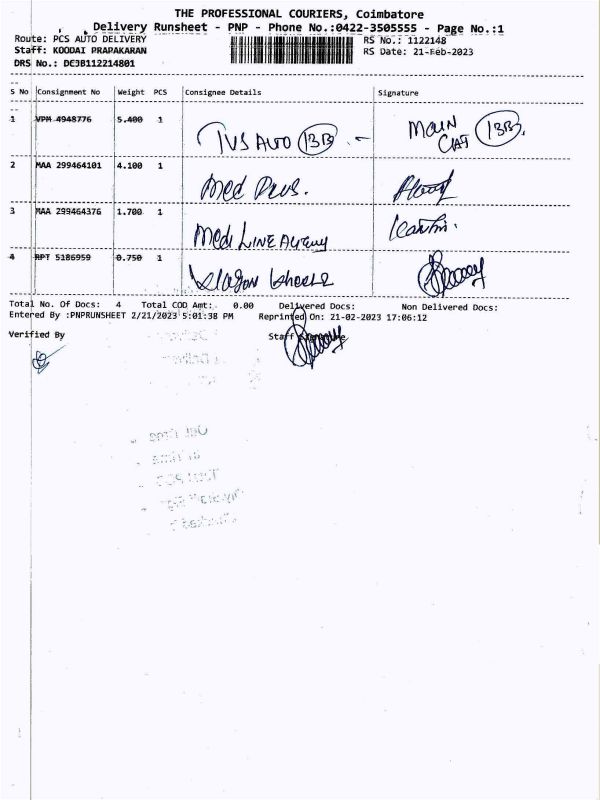 THE PROFESSIONAL COURIERS, Coimbatore
Delivery Runsheet - PNP - Phone No.:0422-3505555 - Page No.:1
Route: PCS AUTO DELIVERY RS No.: 1122148
Staff: KOODAI PRAPAKARAN RS Date: 21-Feb-2023
DRS No.: DE3B112214801
S No Consignment No Weight PCS Consignee Details Signature
1 VPM 4948776 5.400 1 TVS AUTO 13B Main
2 MAA 299464101 4.100 1 Med Plus.
3 MAA 299464376 1.700 1 Medi LINE Agency
4 RPT 5186959 0.750 1 wheels
Total No. Of Docs: 4 Total COD Amt: 0.00 Delivered Docs: Non Delivered Docs:
Entered By :PNPRUNSHEET 2/21/2023 5:01:38 PM Reprinted On: 21-02-2023 17:06:12
Verified By Staff